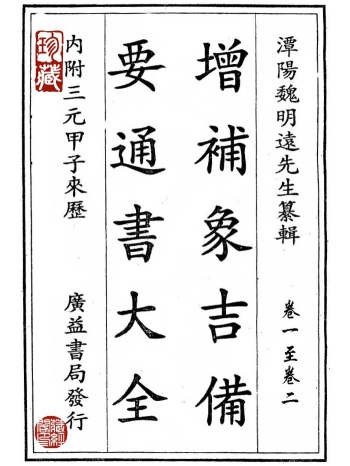 潭陽魏明遠先生纂輯
卷一至卷二
增補象吉備
要通書大全
珍藏
內附三元甲子來歷
廣益書局發行